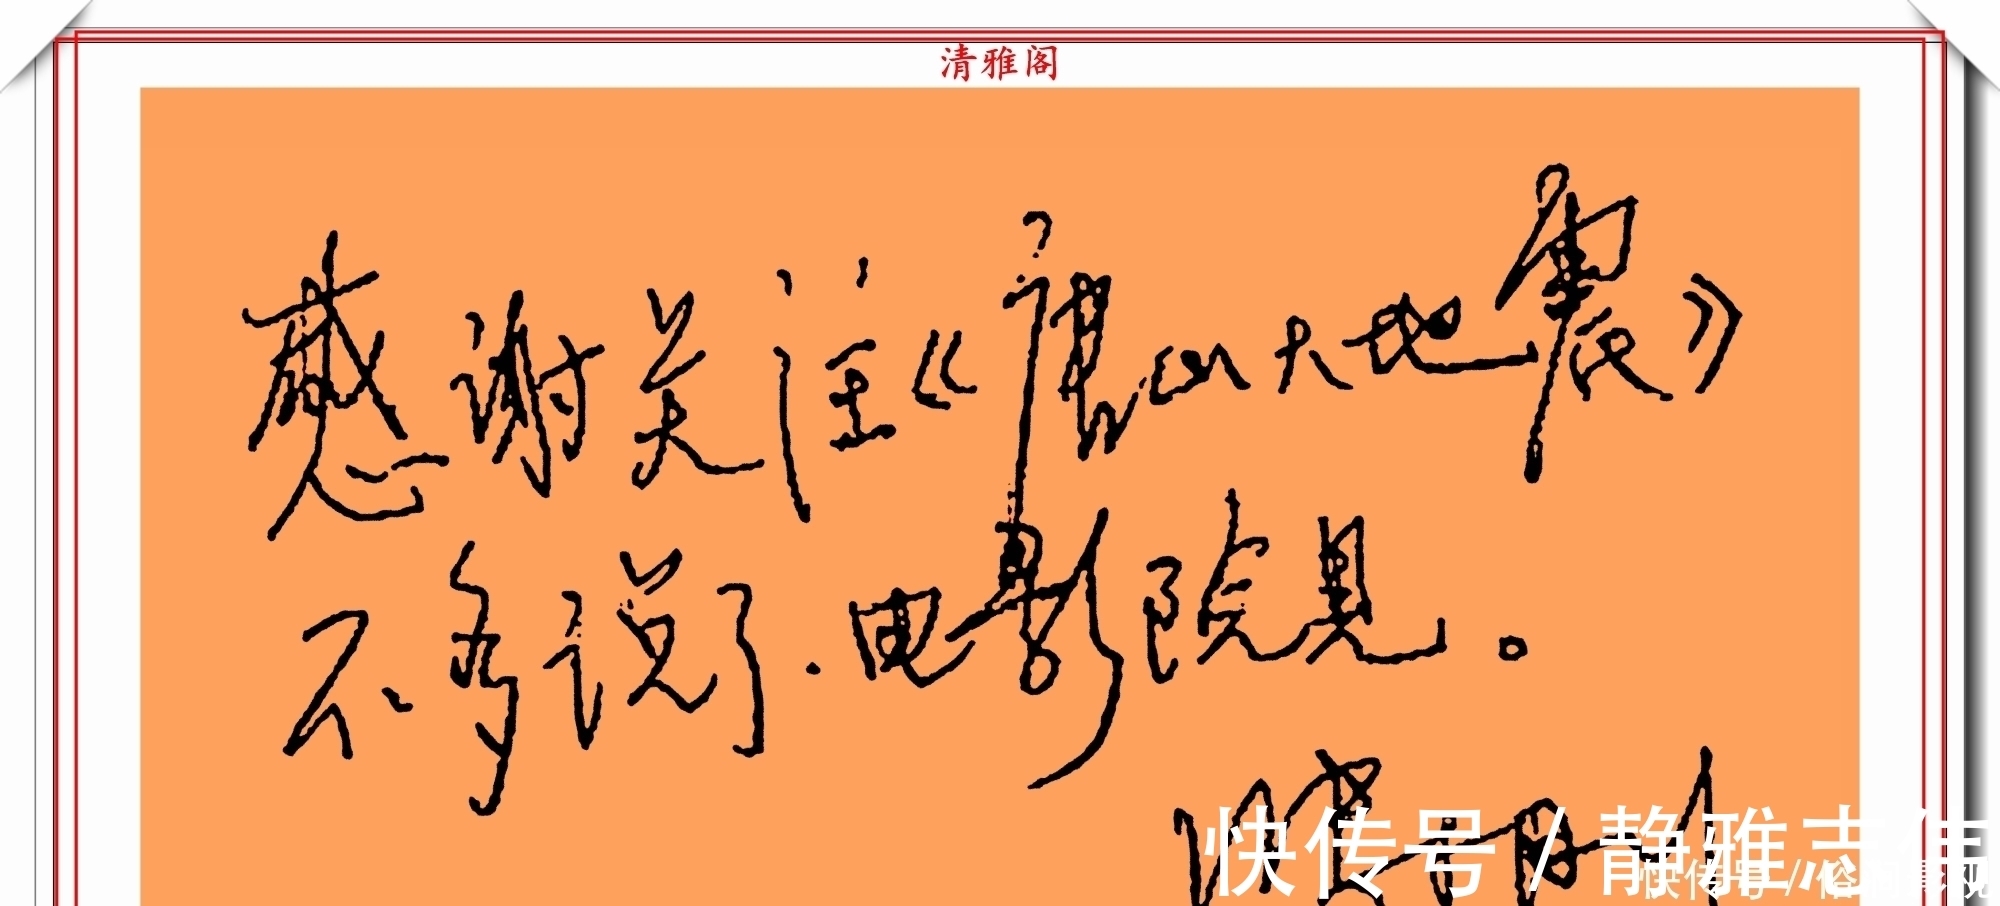 清雅阁
感谢关注《唐山大地震》
不多说了.电影院见。
快传号/静雅志
快传号/